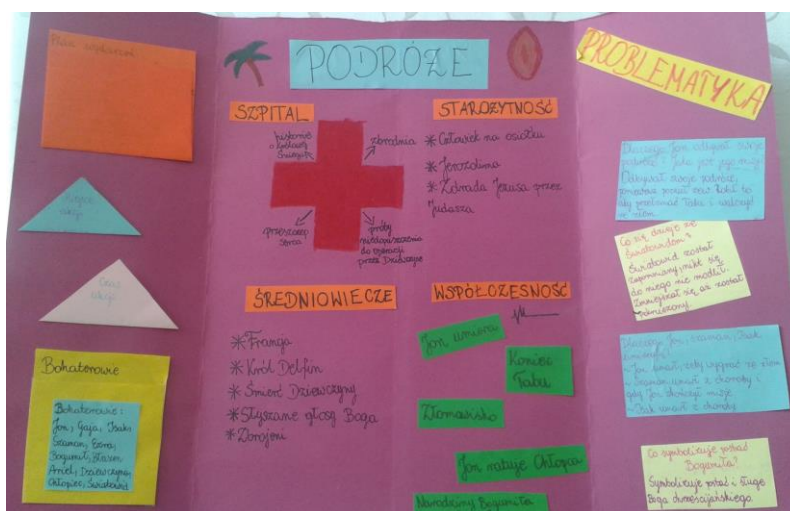 Plan wydarzeń
Miejsce
akcji
Czas
akcji
Bohaterowie
Bohaterowie:
Jon, Gaja, Isak,
Szaman, Ezra,
Bogumił, Błazen
Ariel, Dziewczyna,
Chłopiec, Światowid
PODRÓŻE
SZPITAL
historia
o Królowej
zbrodnia
przeszczep
serca
próby
niedopuszczenia
do operacji
przez Dziewczynę
STAROŻYTNOŚĆ
* Człowiek na osiołku
* Jerozolima
* Zdrada Jezusa przez
Judasza
ŚREDNIOWIECZE
* Francja
* Król Delfin
* Śmierć Dziewczyny
* Słyszane głosy Boga
* Zbrojeni
WSPÓŁCZESNOŚĆ
Jon umiera
Koniec
Tabu
Złomowisko
Jon ratuje Chłopca
Narodziny Bogumiła
PROBLEMATYKA
Dlaczego Jon odbywał swoje
podróże? Jaka jest jego misja?
Odbywał swoje podróże,
ponieważ
aby przełamać Tabu i walczyć
ze złem.
Co się dzieje ze
Światowidem?
Światowid został
zapomniany, nikt się
do niego nie modlił.
Zmniejszał się aż został
Dlaczego Jon, Szaman, Isak
- Jon umarł, żeby wygrać ze złem
- Szaman umarł z choroby i
gdy Jon skończył misję
- Isak umarł z choroby
Co symbolizuje postać
Bogumiła?
Symbolizuje postać i sługę
Boga chrześcijańskiego.